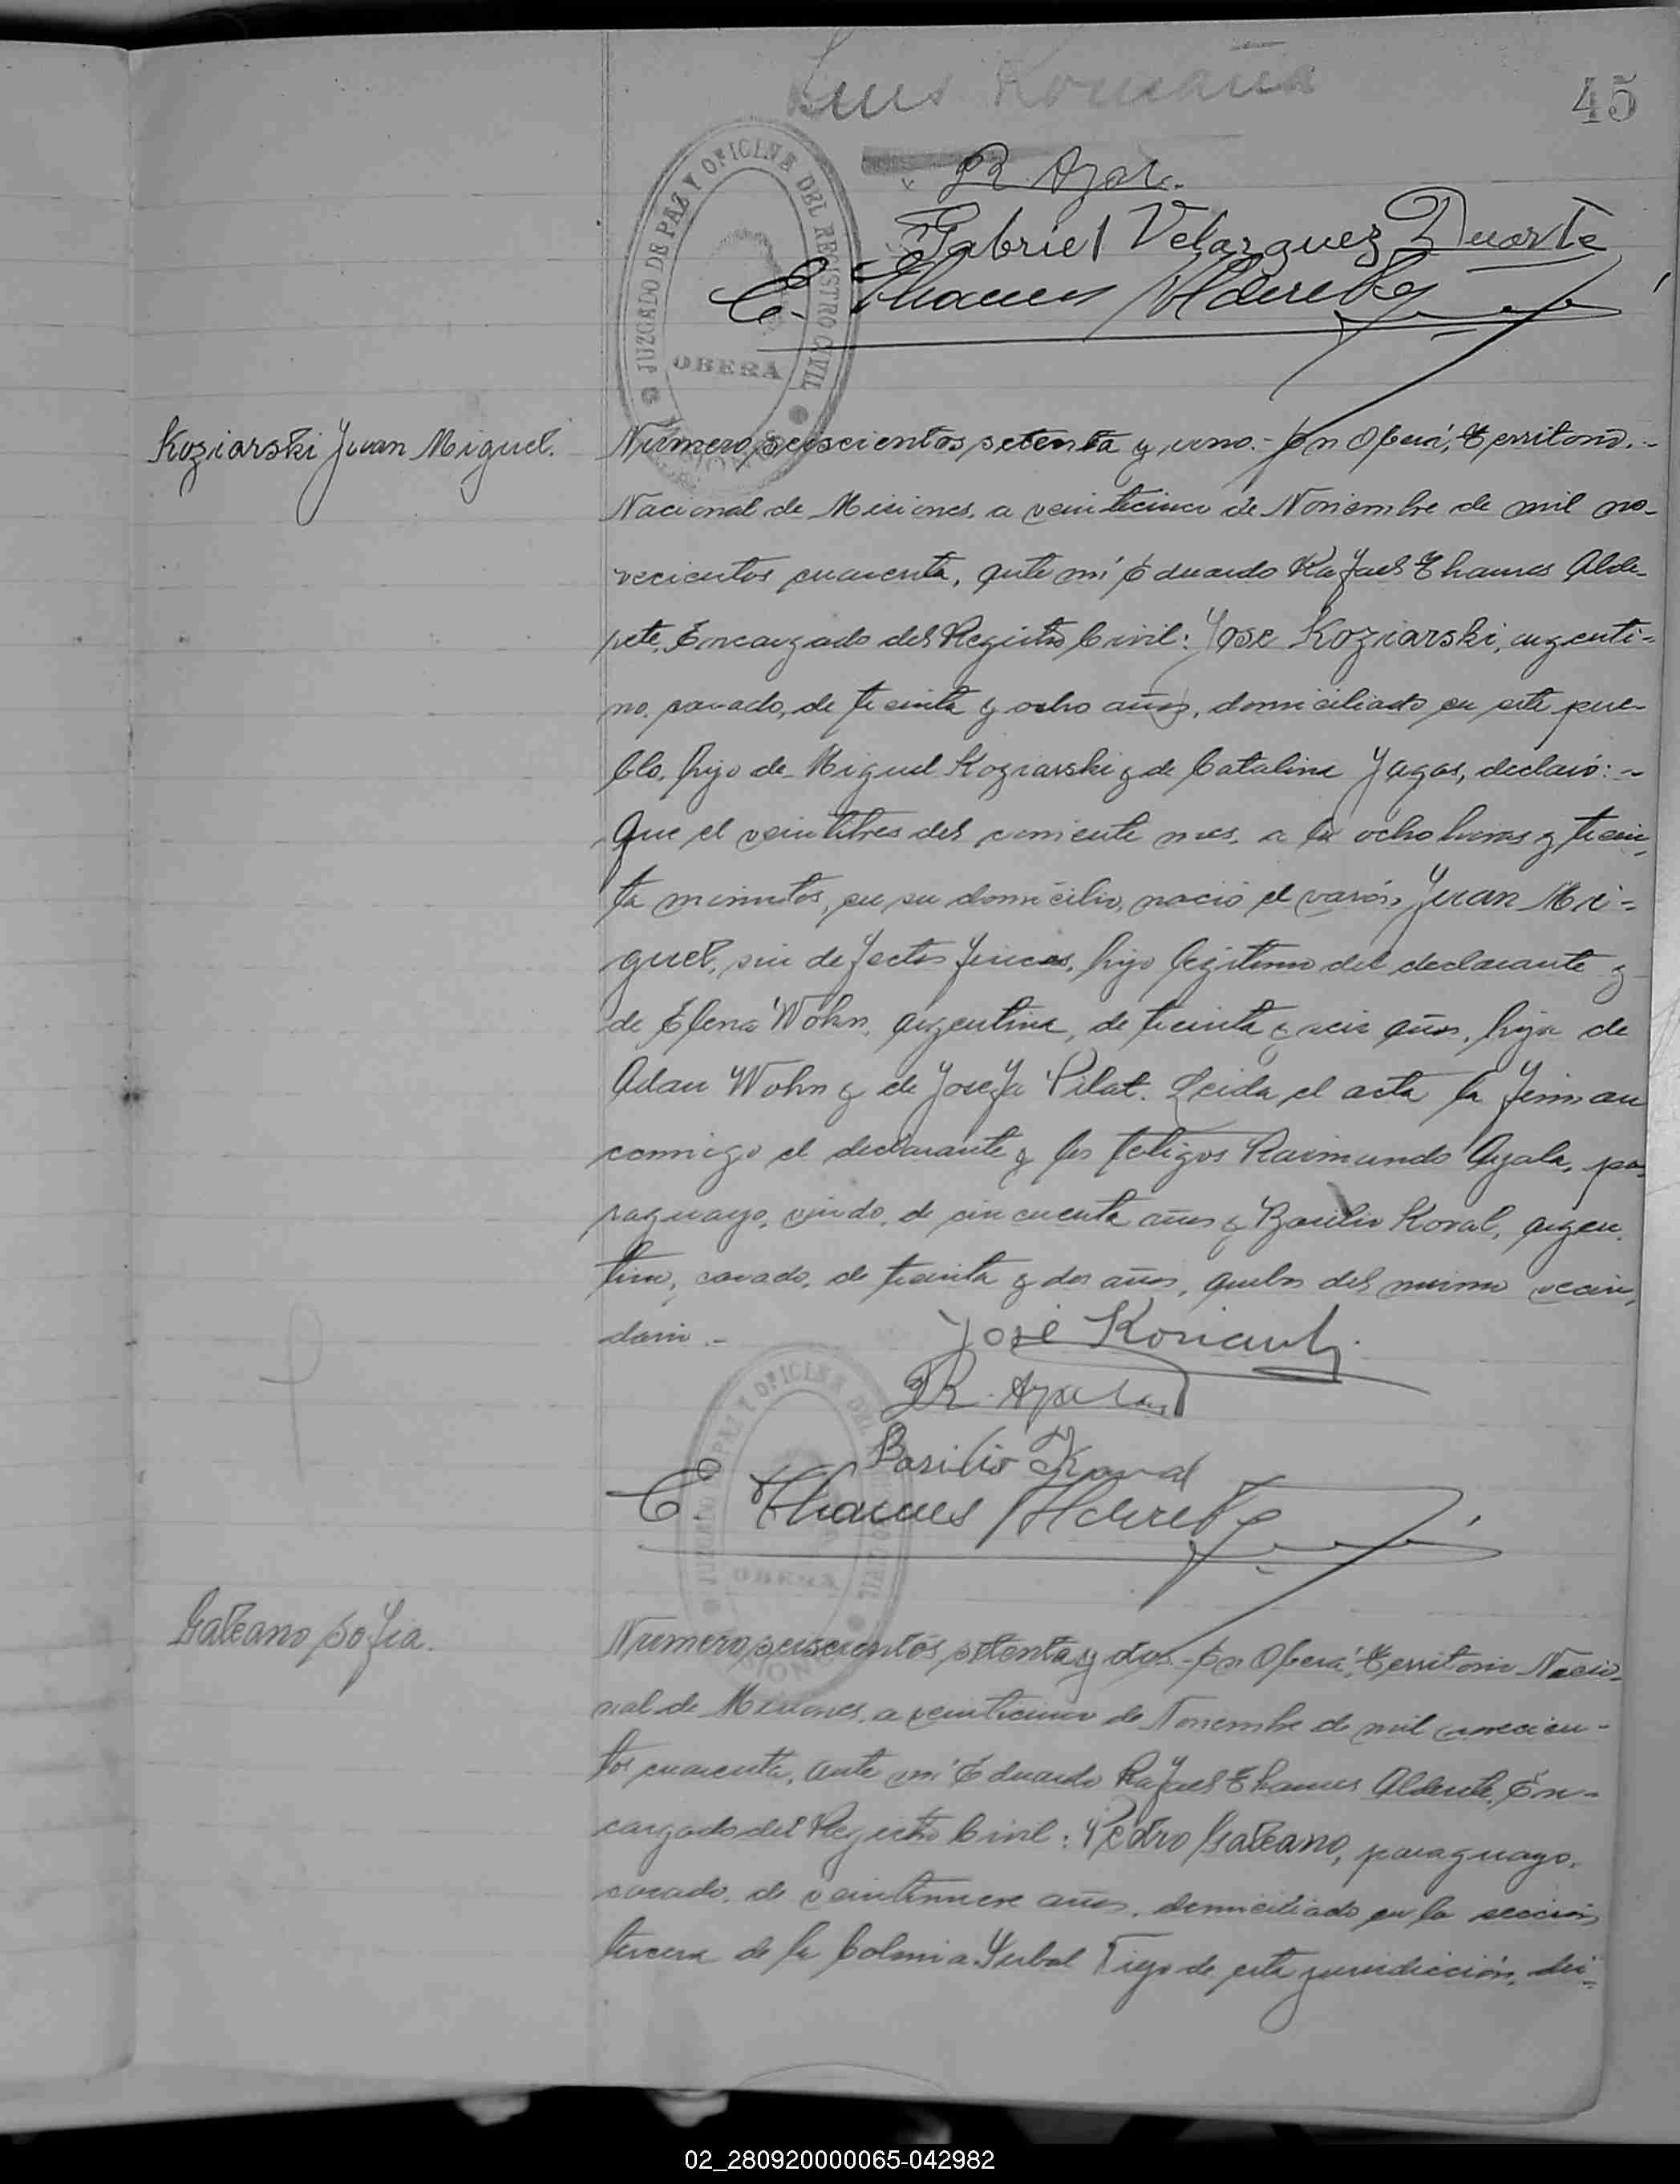 Luis Romaña
45
R. Ayala.
Gabriel Velazquez Duarte
E. Thames Alderete
JUZGADO DE PAZ Y OFICINA DEL REGISTRO CIVIL
OBERA
MISIONES
Koziarski Juan Miguel.
Número seiscientos setenta y uno.- En Oberá, Territorio.-
Nacional de Misiones, a veinticinco de Noviembre de mil no-
vecientos cuarenta, ante mí Eduardo Rafael Thames Alde-
rete, Encargado del Registro Civil: Jose Koziarski, argenti-
no, casado, de treinta y ocho años, domiciliado en este pue-
blo, hijo de Miguel Koziarski y de Catalina Yagas, declaró:-
Que el veintitres del corriente mes, a las ocho horas y trein-
ta minutos, en su domicilio, nació el varón, Juan Mi-
guel, sin defectos físicos, hijo legitimo del declarante y
de Elena Wohn, argentina, de treinta y seis años, hija de
Adan Wohn y de Josefa Pilat. Leida el acta la firman
conmigo el declarante y los testigos Raimundo Ayala, pa-
raguayo, viudo, de cincuenta años y Basilio Koval, argen-
tino, casado, de treinta y dos años, ambos del mismo vecin-
dario.-
José Koziarski
R. Ayala
Basilio Koval
E. Thames Alderete
JUZGADO DE PAZ Y OFICINA DEL REGISTRO CIVIL
OBERA
MISIONES
Galeano Sofia.
Número seiscientos setenta y dos.- En Oberá, Territorio Nacio-
nal de Misiones, a veinticinco de Noviembre de mil novecien-
tos cuarenta, ante mí Eduardo Rafael Thames Alderete, En-
cargado del Registro Civil: Pedro Galeano, paraguayo,
casado, de veintinueve años, domiciliado en la sección
tercera de la Colonia Yerbal Viejo de esta jurisdicción,
02_280920000065-042982